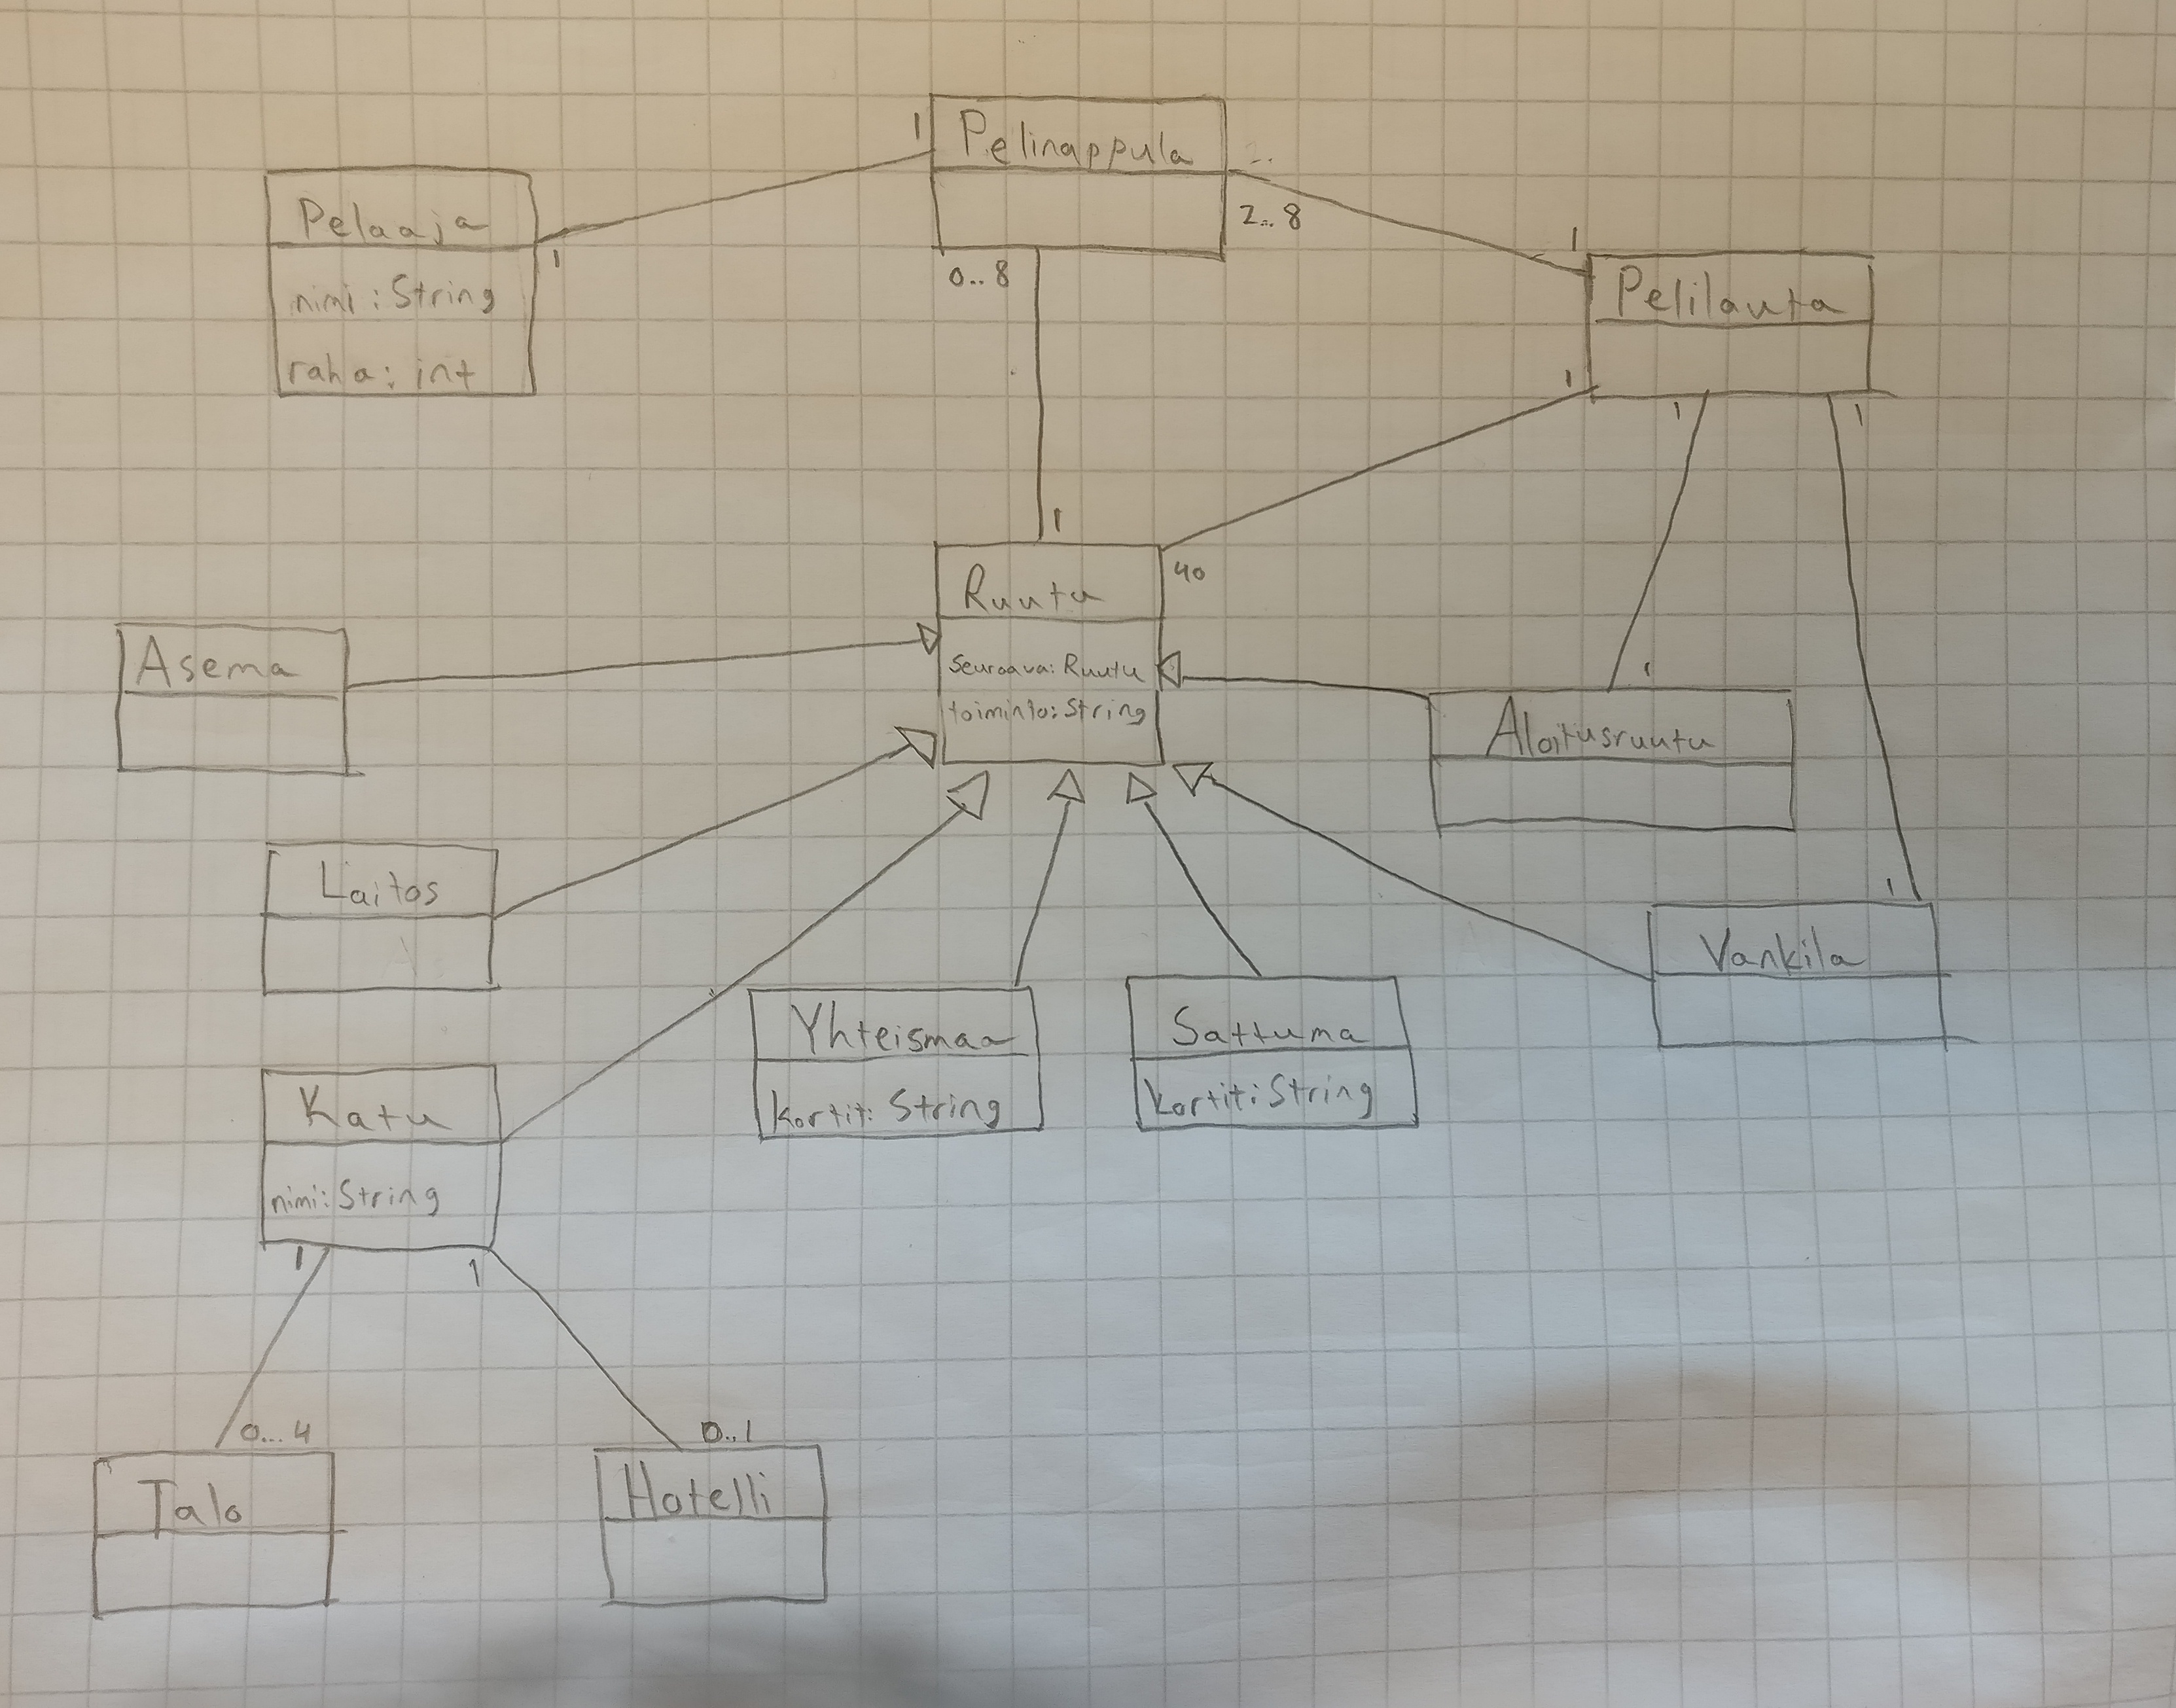 1
Pelinappula
2..8
0..8
Pelaaja
1
nimi: String
raha: int
1
Pelilauta
1
1
1
1
40
Ruutu
seuraava: Ruutu
toiminto: String
Asema
1
Aloitusruutu
Laitos
1
Vankila
Yhteismaa
kortit: String
Sattuma
kortit: String
Katu
nimi: String
1
1
0...4
0..1
Talo
Hotelli